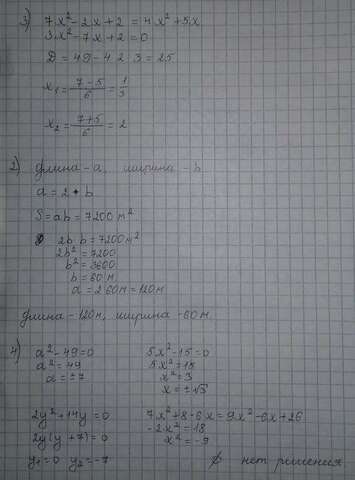 3) 7x² - 2x + 2 = 4x² + 5x
3x² - 7x + 2 = 0
D = 49 - 4·2·3 = 25
x₁ = (7-5)/6 = 1/3
x₂ = (7+5)/6 = 2
2) длина - a, ширина - b
a = 2·b
S = ab = 7200 м²
2b·b = 7200 м²
2b² = 7200
b² = 3600
b = 60 м
a = 2·60 м = 120 м
длина - 120 м, ширина - 60 м
4) a² - 49 = 0
a² = 49
a = ±7
5x² - 15 = 0
5x² = 15
x² = 3
x = ±√3
2y² + 14y = 0
2y(y + 7) = 0
y₁ = 0 y₂ = -7
7x² + 8 - 6x = 9x² - 6x + 26
-2x² = 18
x² = -9
∅ нет решения.